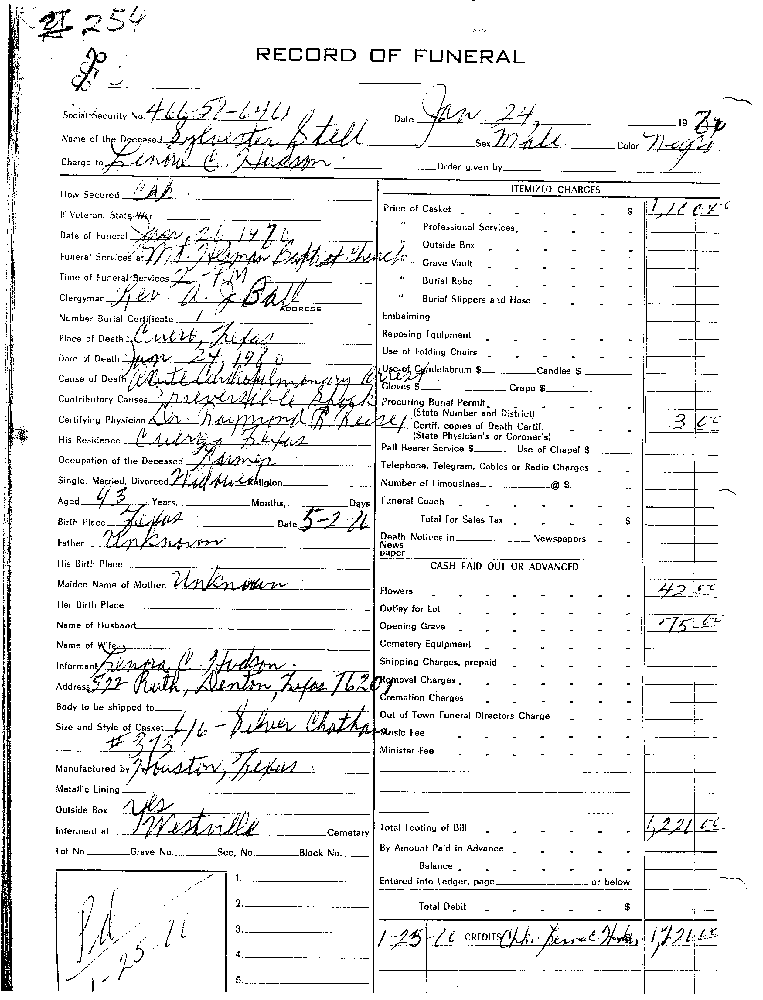 254
RECORD OF FUNERAL
Social Security No. Date Jan 24, 19
Name of the Deceased Sylvester Stell Sex Male Color Negro
Charge to Lenora C. Hudson Order given by
How Secured
If Veteran, State War
Date of Funeral Jan. 26 1976
Funeral Services at Mt. Herman Baptist Church
Time of Funeral Services 2 PM
Clergyman Rev. A. J. Ball
ADDRESS
Number Burial Certificate 1
Place of Death Cuero, Texas
Date of Death Jan 24, 1976
Cause of Death Acute Cardiopulmonary Arrest
Contributory Causes Irreversible Shock
Certifying Physician Dr. Raymond R Reese
His Residence Cuero, Texas
Occupation of the Deceased Farmer
Single, Married, Divorced Widower Religion
Aged Years, Months, Days
Birth Place Texas Date
Father Unknown
His Birth Place
Maiden Name of Mother Unknown
Her Birth Place
Name of Husband
Name of Wife
Informant Lenora C. Hudson
Address 522 Ruth, Denton, Texas
Body to be shipped to
Size and Style of Casket 6/6 - Silver Chatham
# 393
Manufactured by Houston, Texas
Metallic Lining
Outside Box Yes
Interment at Westville Cemetary
Lot No. Grave No. Sec. No. Block No.
Pd
1-25-76
1.
2.
3.
4.
5.
ITEMIZED CHARGES
Price of Casket $
" Professional Services,
Outside Box
" Grave Vault
" Burial Robe
" Burial Slippers and Hose
Embalming
Reposing Equipment
Use of Folding Chairs
Use of Candelabrum $ Candles $
Gloves $ Crape $
Procuring Burial Permit
(State Number and District)
Certif. copies of Death Certif. 3 00
(State Physician's or Coroner's)
Pall Bearer Service $ Use of Chapel $
Telephone, Telegram, Cables or Radio Charges
Number of Limousines @ $
Funeral Coach
Total For Sales Tax $
Death Notices in Newspapers
News
paper
CASH PAID OUT OR ADVANCED
Flowers 42 00
Outlay for Lot
Opening Grave 75 00
Cemetary Equipment
Shipping Charges, prepaid
Removal Charges
Cremation Charges
Out of Town Funeral Directors Charge
Music Fee
Minister Fee
Total Footing of Bill 1,221 00
By Amount Paid in Advance
Balance
Entered into Ledger, page or below
Total Debit $
1-25-76 CREDITS 1,221 00